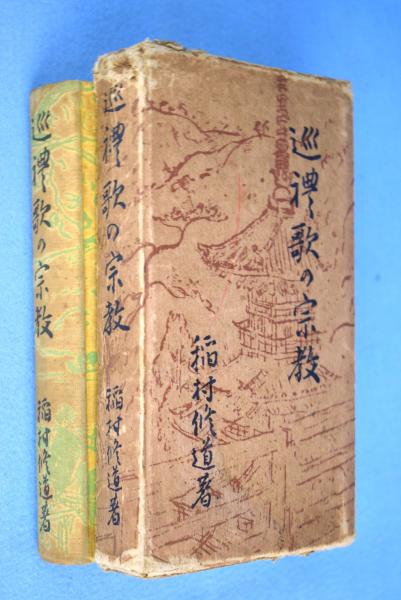 巡禮歌の宗教
稲村修道著
巡禮歌の宗教
稲村修道著
巡禮歌の宗教
稲村修道著